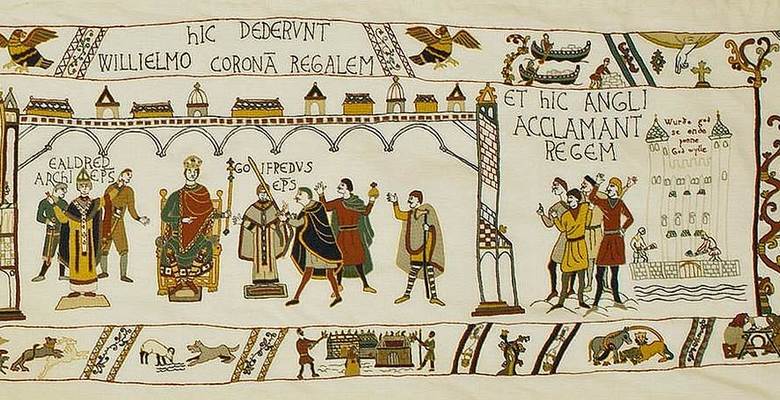 hIC DEDERVNT
WILLIELMO CORONĀ REGALEM
EALDRED
ARChI EPS
GOIFREDVS
EPS
ET hIC ANGLI
ACCLAMANT
REGEM
Wurde god
se ende
þonne
God wylle